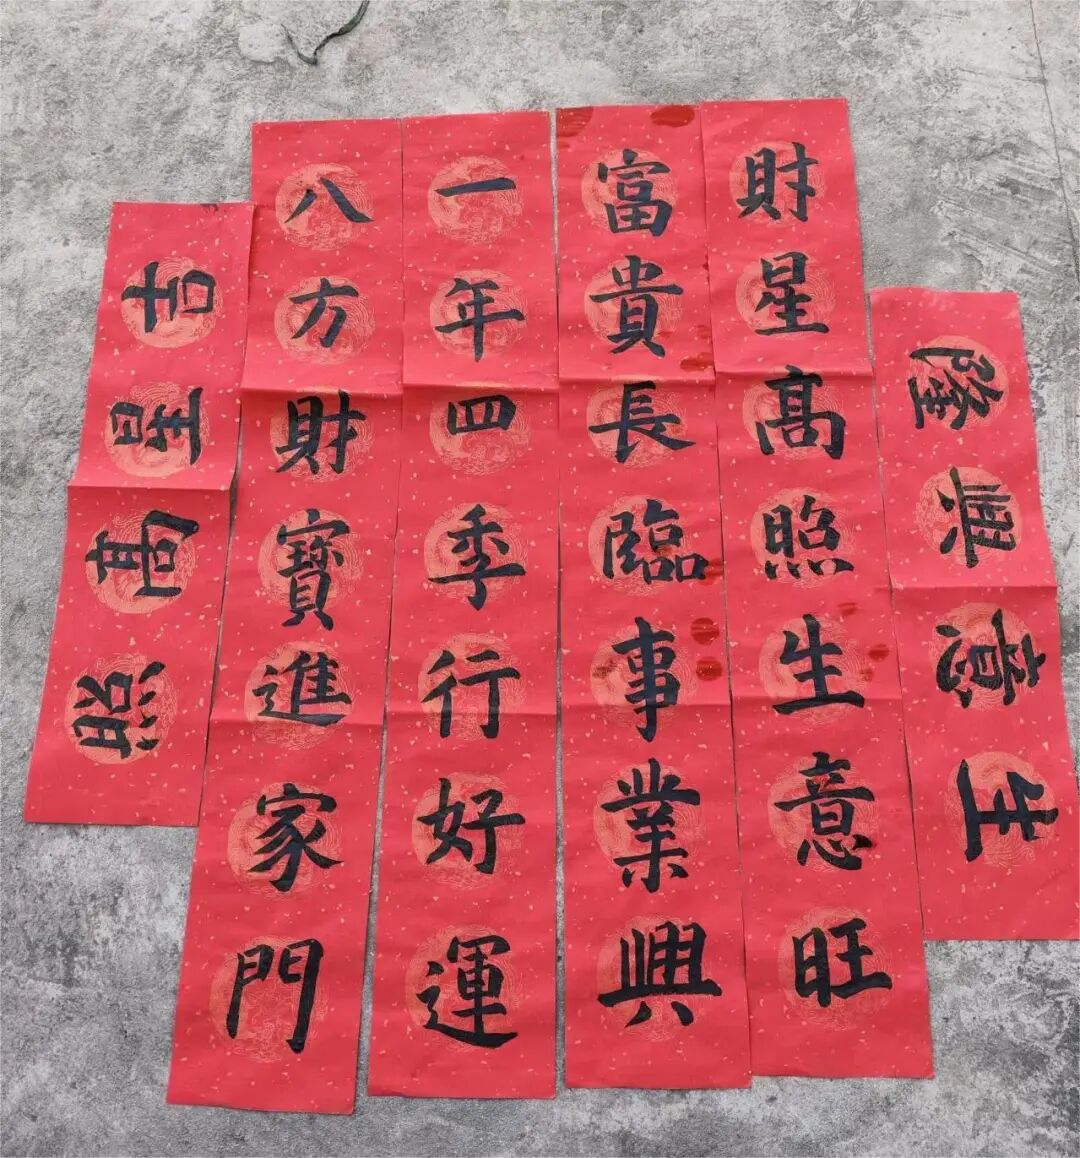 生意興隆
財星高照生意旺
富貴長臨事業興
一年四季行好運
八方財寶進家門
吉星高照